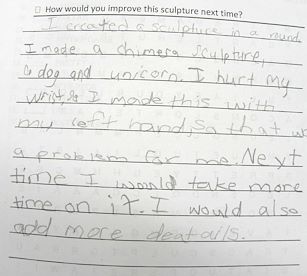 How would you improve this sculpture next time?
I created a sculpture in a round
I made a chimera sculpture,
a dog and unicorn. I hurt my
wrist so I made this with
my left hand, so that
a problem for me. Next
time I would take more
time on it. I would also
add more deatails.